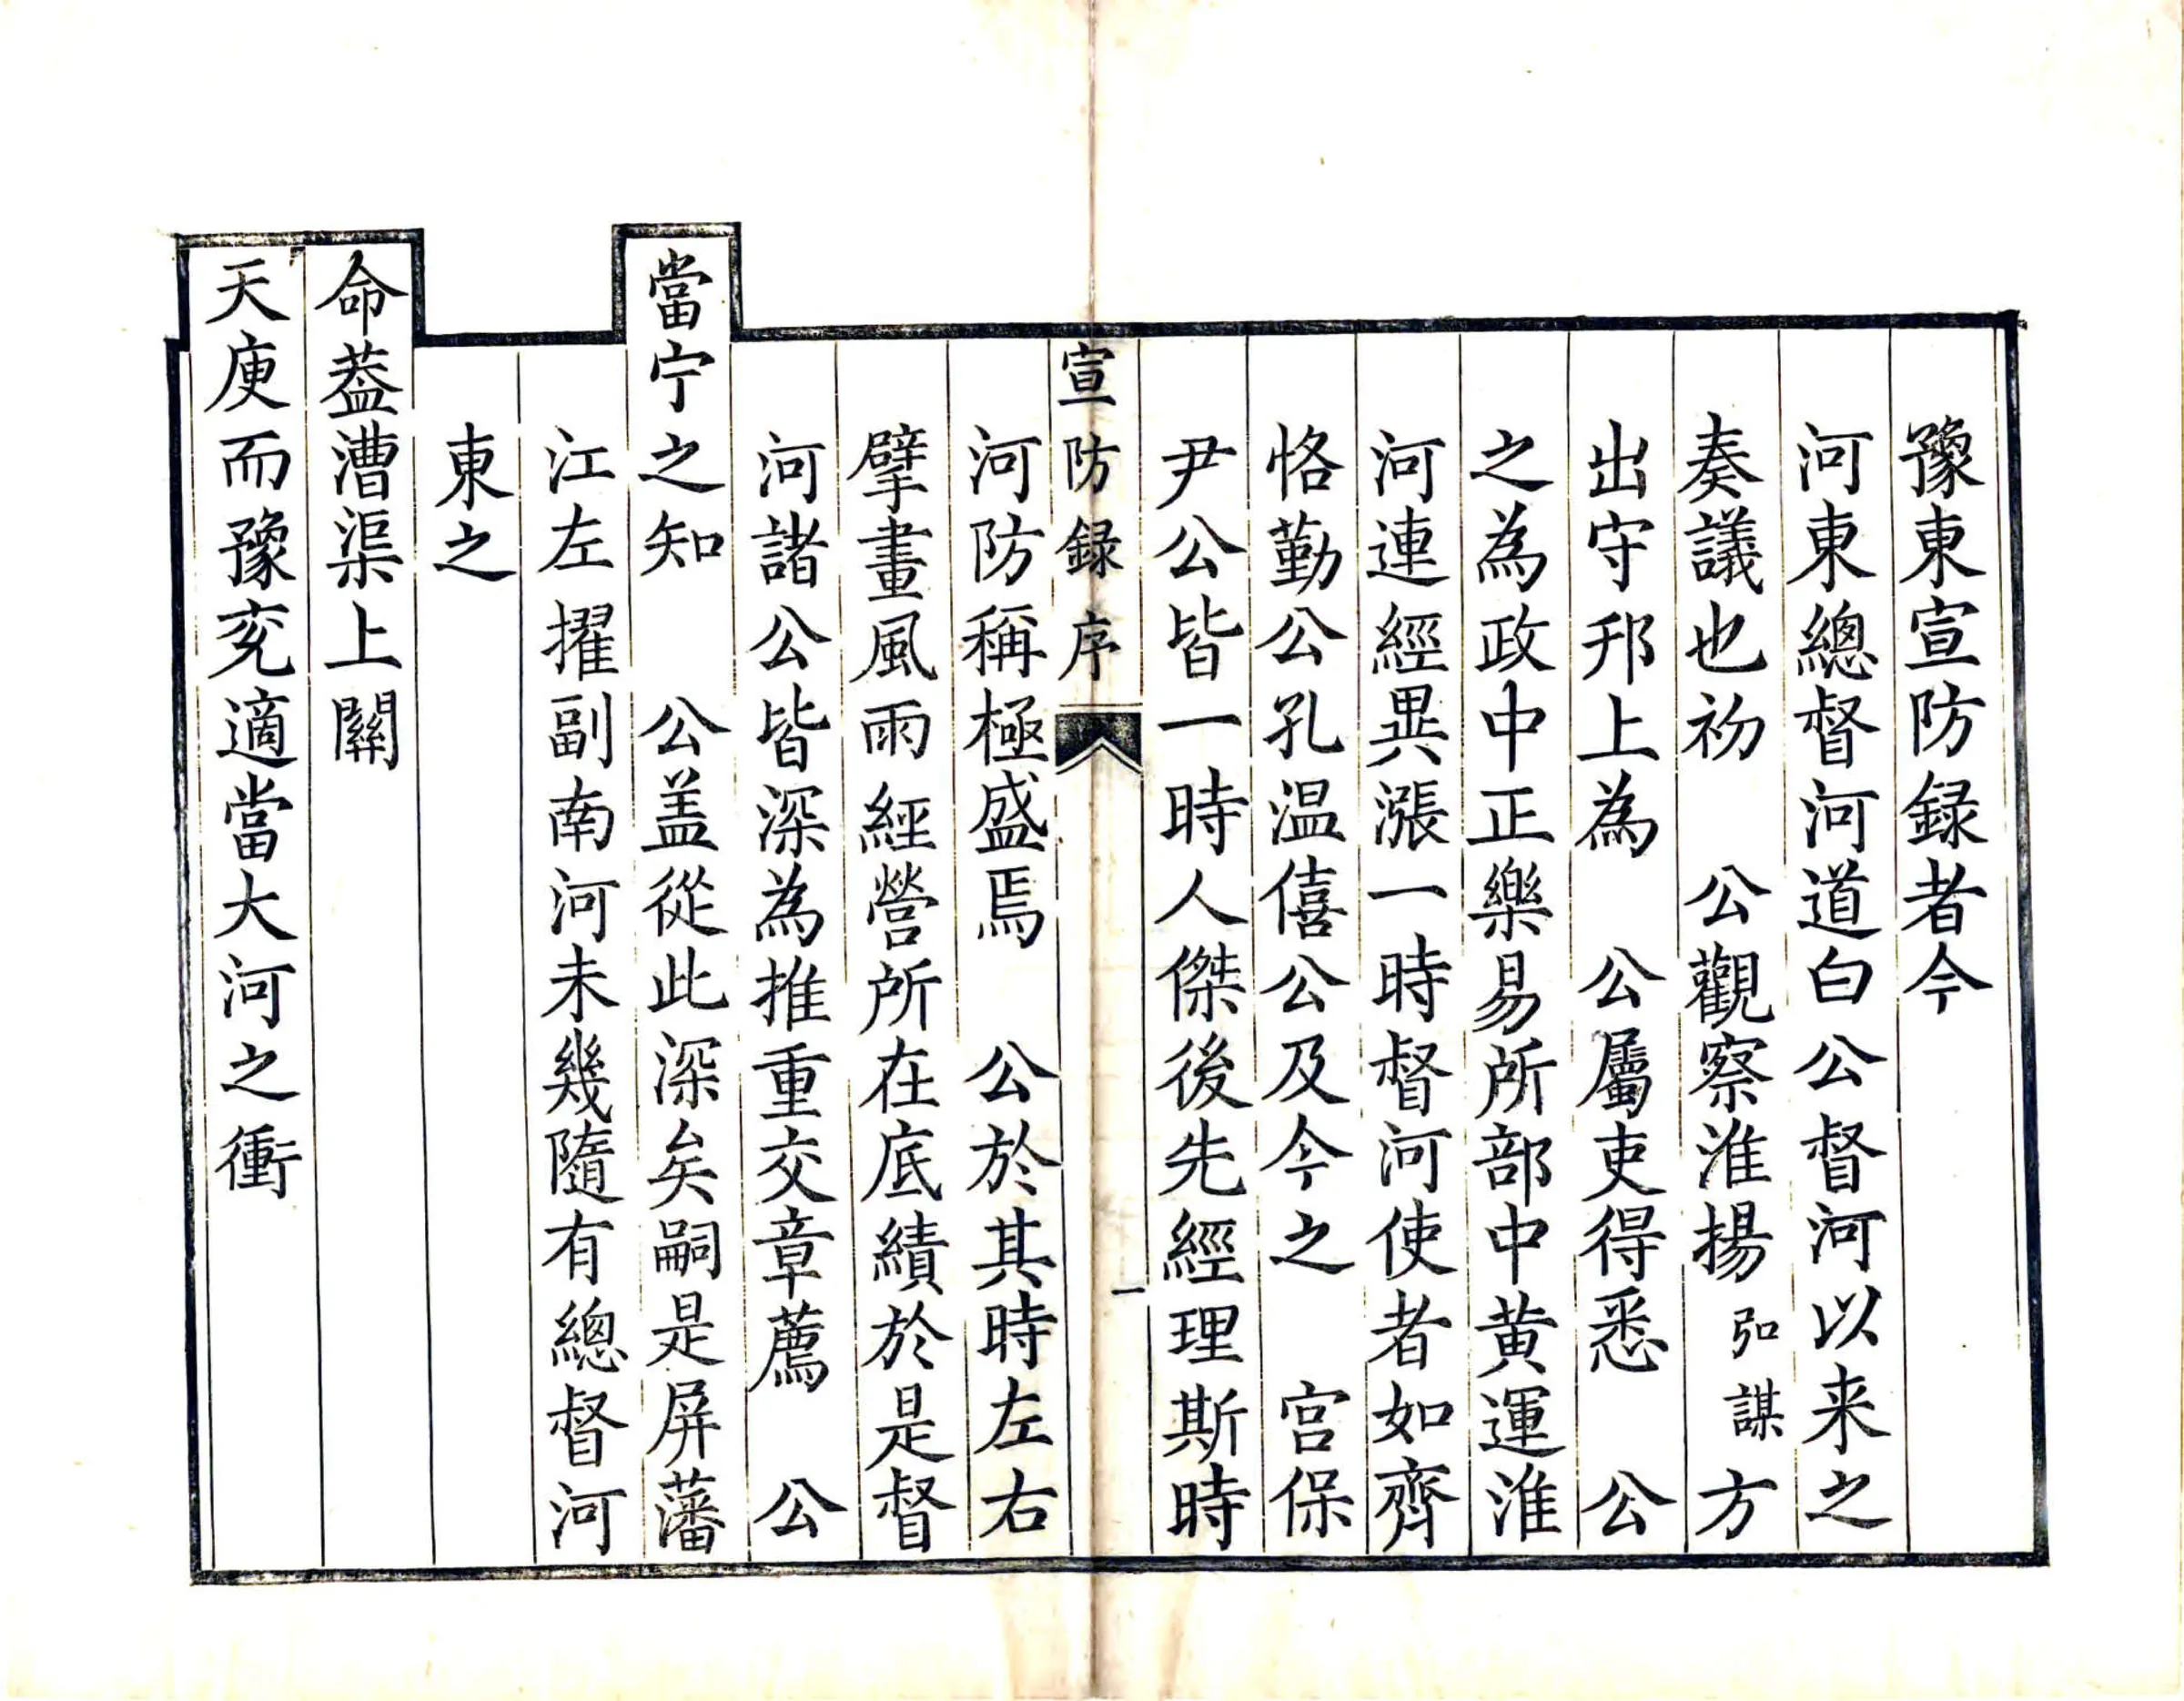 豫東宣防録者今
河東總督河道白公督河以来之
奏議也初　公觀察淮揚弘謀方
出守邗上為　公屬吏得悉　公
之為政中正樂易所部中黄運淮
河連經異漲一時督河使者如齊
恪勤公孔温僖公及今之　宫保
尹公皆一時人傑後先經理斯時
宣防録序
一
河防稱極盛焉　公於其時左右
擘畫風雨經營所在底績於是督
河諸公皆深為推重交章薦　公
當宁之知　公盖從此深矣嗣是屏藩
江左擢副南河未幾隨有總督河
東之
命葢漕渠上關
天庾而豫兖適當大河之衝